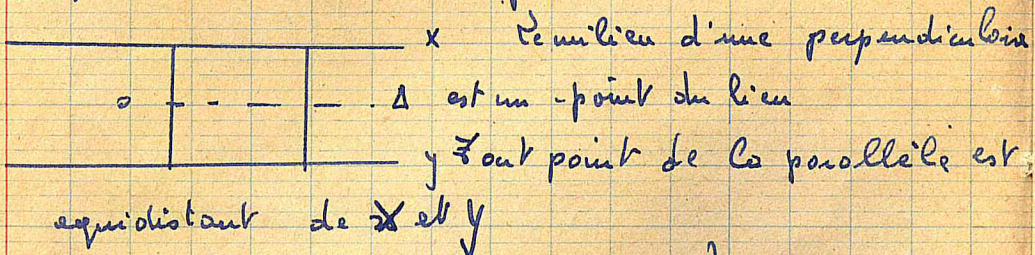 x Le milieu d'une perpendiculaire
Δ est un point du lieu
y Tout point de la parallèle est
equidistant de X et y